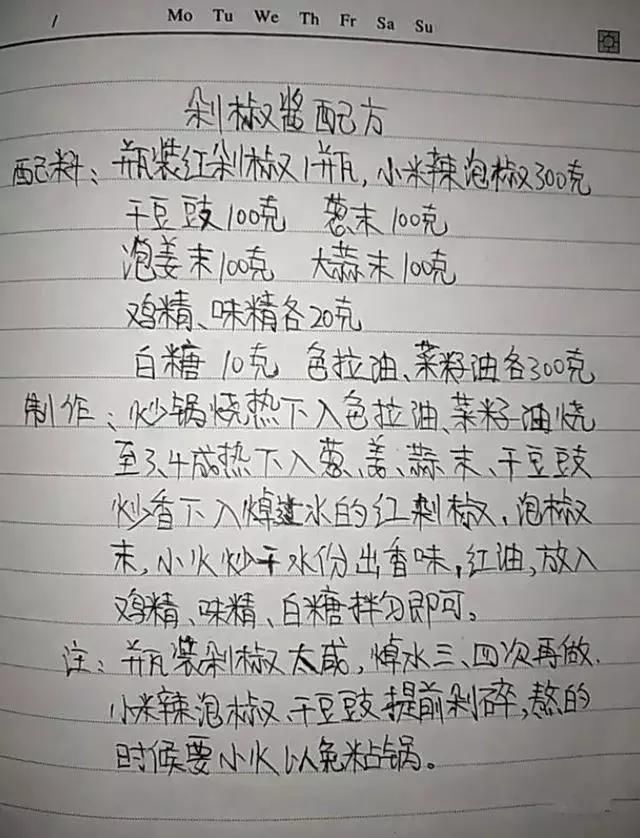 Mo Tu We Th Fr Sa Su
剁椒酱配方
配料：瓶装红剁椒1瓶，小米辣泡椒300克
干豆豉100克 葱末100克
泡姜末100克 大蒜末100克
鸡精、味精各20克
白糖 10克 色拉油、菜籽油各300克
制作：炒锅烧热下入色拉油、菜籽油烧
至3、4成热下入葱、姜、蒜末、干豆豉
炒香下入焯过水的红剁椒，泡椒
末，小火炒干水份出香味，红油，放入
鸡精、味精、白糖拌匀即可。
注：瓶装剁椒太咸，焯水三、四次再做.
小米辣泡椒、干豆豉提前剁碎，熬的
时候要小火以免粘锅。